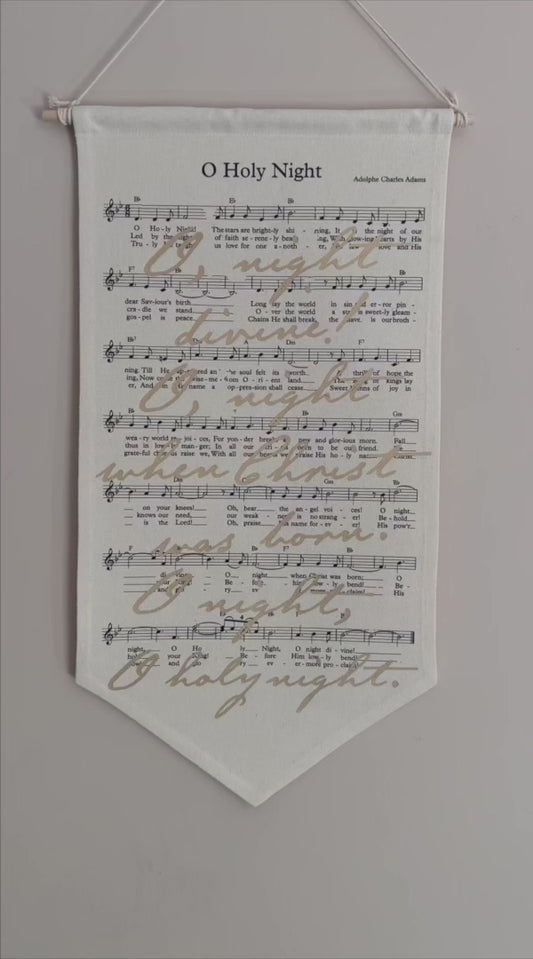 O Holy Night
Adolphe Charles Adams
Bb Eb Bb
O Ho - ly Night! The stars are bright-ly shi - ning, It the night of our
Led by the of faith se - rene - ly ing, With by His
Tru - ly us love for one a - noth - er, and His
O, night
F7 Bb
dear Sav-iour's birth. Long lay the world in sin er - ror pin -
cra - dle we stand. O - ver the world a is sweet-ly gleam -
gos - pel is peace. Chains He shall break, the is our broth -
divine!
Bb7 A Dm F7
ning. Till He the soul felt its worth. A of hope the
ing, Now from O - ri - ent land. The kings lay
er, And name a op - pres-sion shall cease. Sweet of joy in
O, night
Bb F7 Bb Gm
wea - ry world joi - ces, For yon - der new and glo-rious morn. Fall
thus in man - ger; In all our to be our friend.
grate-ful raise we, With all our praise His ho - ly
when Christ
Dm Cm Gm Bb
on your knees! Oh, hear the an - gel voi - ces! O night
knows our need, our weak - is no strang - er! Be - hold
is the Lord! Oh, praise name for - ev - er! His pow'r
was born.
F7 Bb F7 Bb
O night when Christ was born; O
Be - ly bend! Be -
and ry ev His
O night,
night, O Ho ly Night, O night di - vine!
your King! Be - fore Him low - ly bend!
and ry ev - er-more pro -
O holy night.